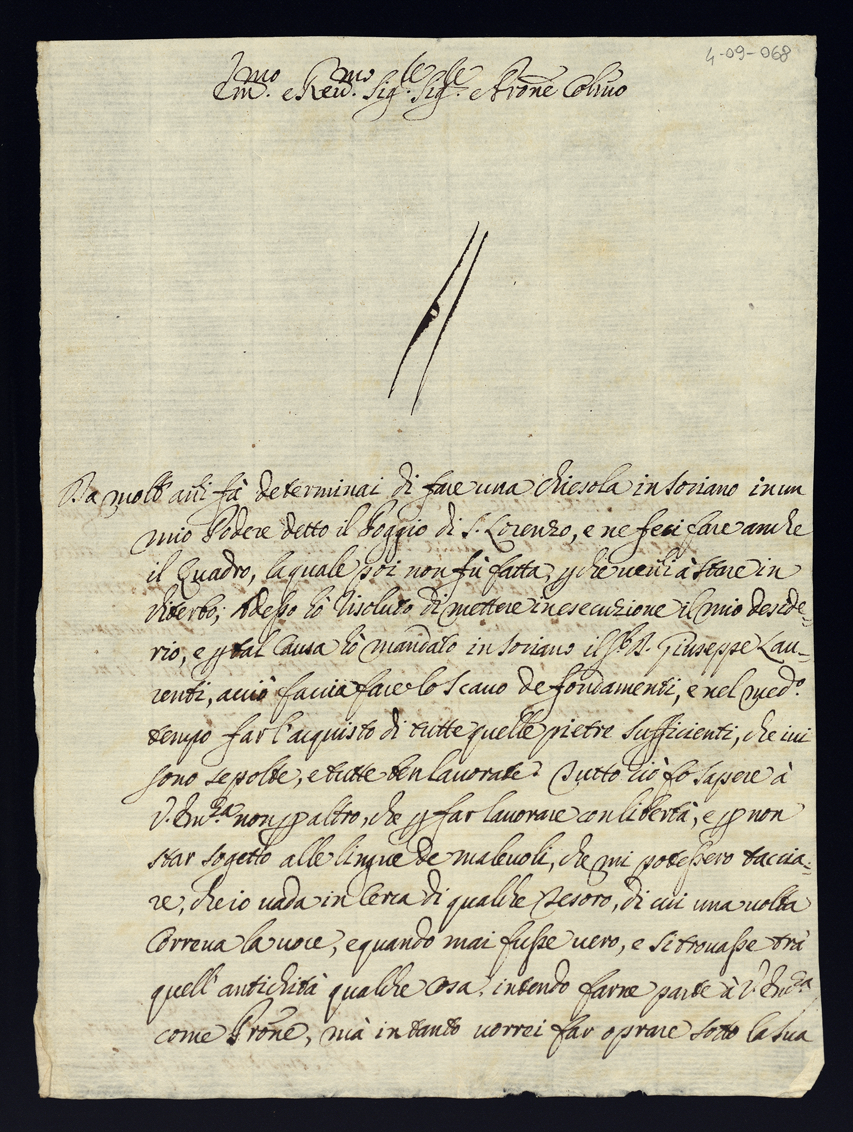 4-09-068
Em.mo e Rev.mo Sig.re Sig.re e Prone Col.mo
Da molti anni fà determinai di fare una chiesola in Soriano in un
mio Podere detto il Poggio di S. Lorenzo, e ne feci fare anche
il Quadro, la quale poi non fù fatta, p che venni à stare in
Viterbo; Adesso hò risoluto di mettere in esecuzione il mio deside=
rio, e p tal causa hò mandato in Soriano il Giuseppe Lau=
renti, acciò faccia fare lo scavo de fondamenti, e nel med.o
tempo far l'acquisto di tutte quelle pietre sufficienti, che ivi
sono sepolte, e tutte ben lavorate. Tutto ciò fo sapere à
V. Em.za non p altro, che p far lavorare con libertà, e p non
star sogetto alle lingue de malevoli, che mi potessero taccia=
re, che io vada in cerca di qualche Tesoro, di cui una volta
correva la voce, e quando mai fusse vero, e si trovasse trà
quell'antichità qualche cosa, intendo farne parte à V. Em.za
come Prone, mà in tanto vorrei far oprare sotto la sua